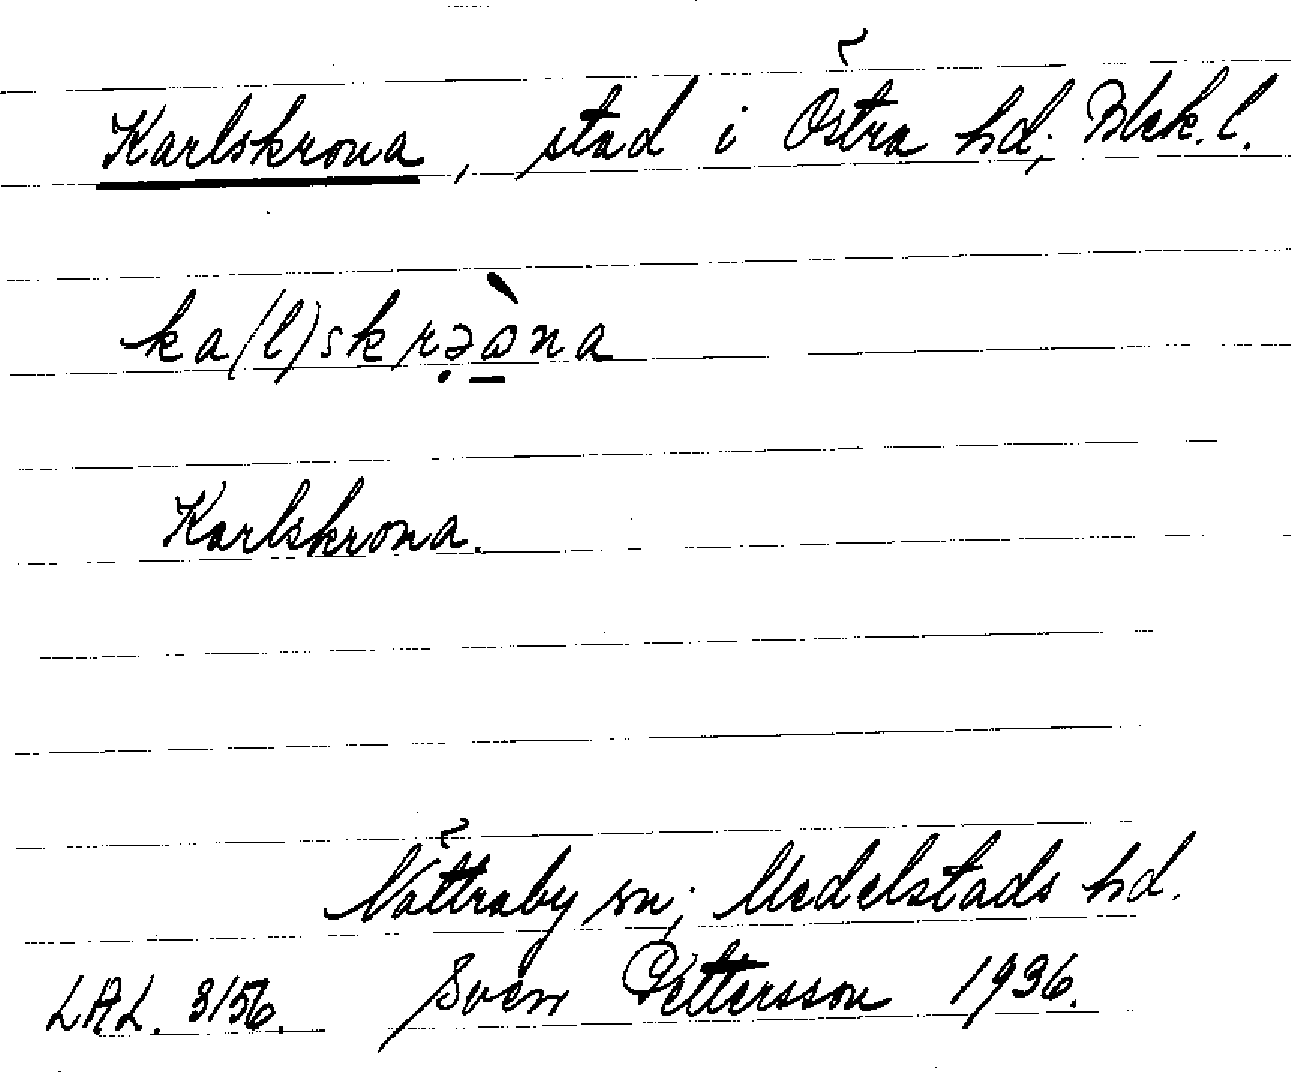 Karlskrona, stad i Östra hd, Blek. l.
ka(l)skrə̣ὼ̱na
Karlskrona.
Nättraby sn, Medelstads hd.
LAL. 3156. Sven Pettersson 1936.